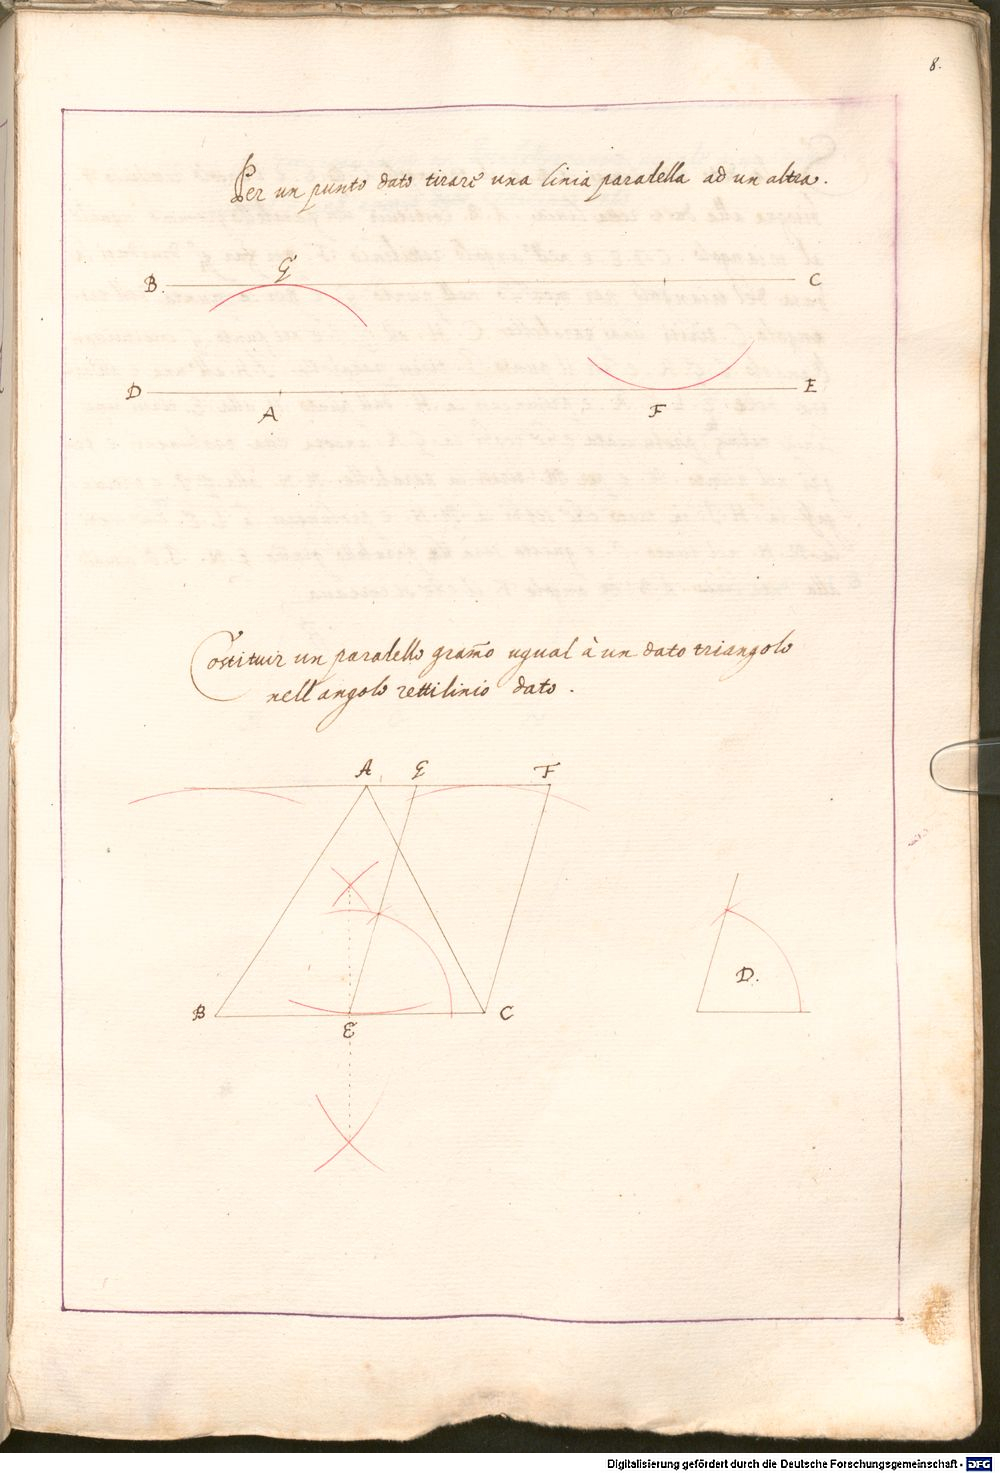 8.
Per un punto dato tirare una linia paralella ad un altra.
B
G
C
D
A
F
E
Costituir un paralello gramo ugual à un dato triangolo
nell'angolo rettilinio dato.
A
G
F
D.
B
E
C
Digitalisierung gefördert durch die Deutsche Forschungsgemeinschaft - DFG